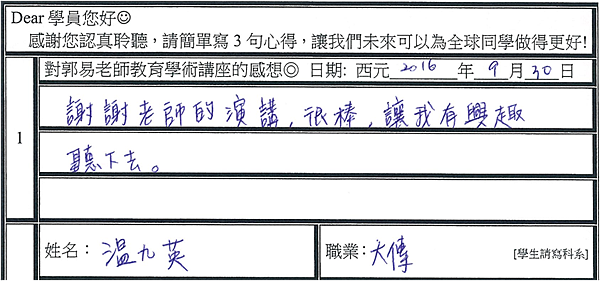 Dear 學員您好☺
感謝您認真聆聽，請簡單寫 3 句心得，讓我們未來可以為全球同學做得更好!
對郭易老師教育學術講座的感想◎ 日期: 西元 2016 年 9 月 30 日
1
謝謝老師的演講，很棒，讓我有興趣
聽下去。
姓名： 温九英 職業： 大傳 [學生請寫科系]